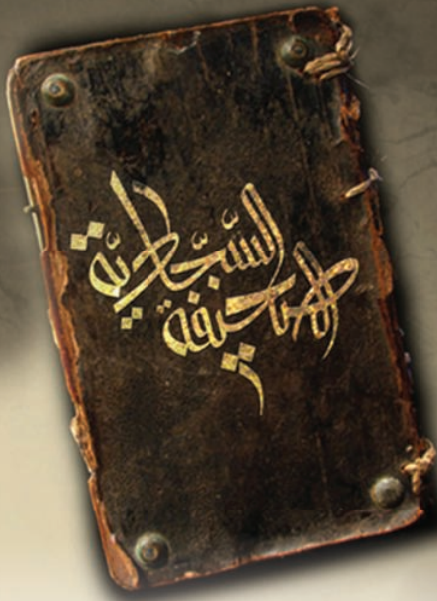 الصحيفة
السّجّاديّة